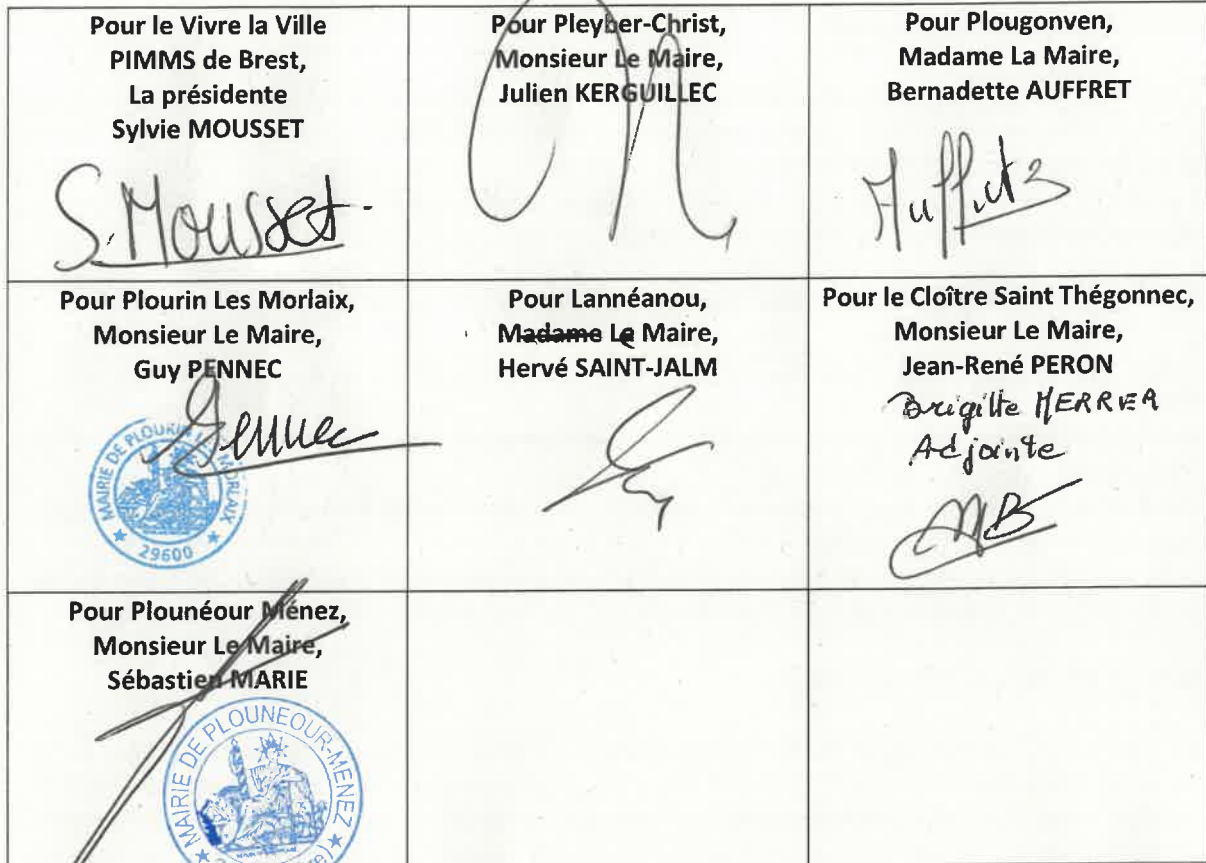 Pour le Vivre la Ville
PIMMS de Brest,
La présidente
Sylvie MOUSSET
S. Mousset
Pour Pleyber-Christ,
Monsieur Le Maire,
Julien KERGUILLEC
Pour Plougonven,
Madame La Maire,
Bernadette AUFFRET
Pour Plourin Les Morlaix,
Monsieur Le Maire,
Guy PENNEC
Pennec
MAIRIE DE PLOURIN
MORLAIX
29600
Pour Lannéanou,
Madame Le Maire,
Hervé SAINT-JALM
Pour le Cloître Saint Thégonnec,
Monsieur Le Maire,
Jean-René PERON
Brigitte MERRER
Adjointe
MB
Pour Plounéour Ménez,
Monsieur Le Maire,
Sébastien MARIE
MAIRIE DE PLOUNEOUR-MENEZ